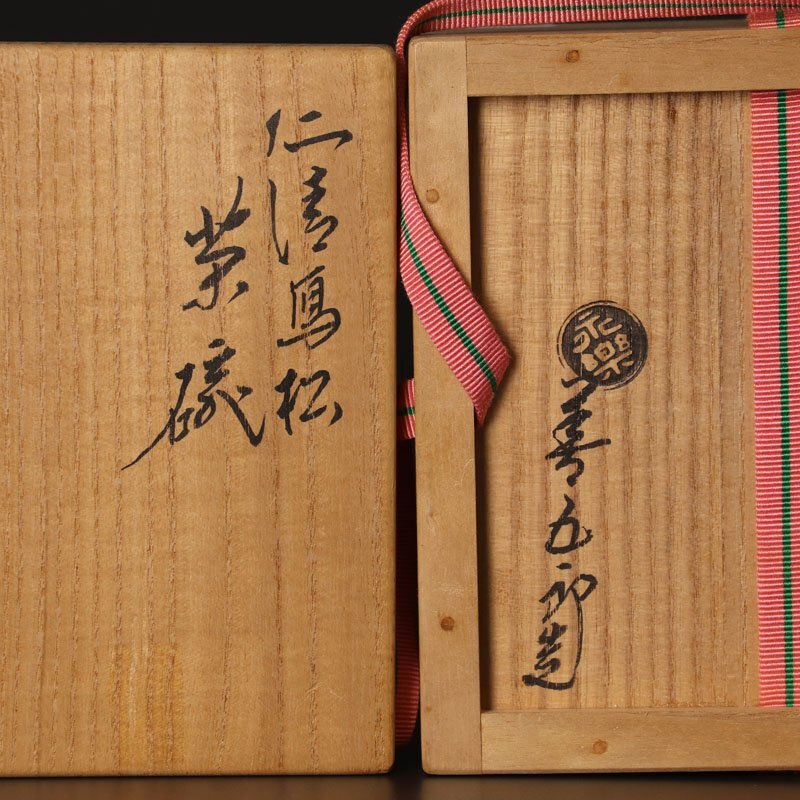 仁清鳫松
茶碗
永樂
善五郎造